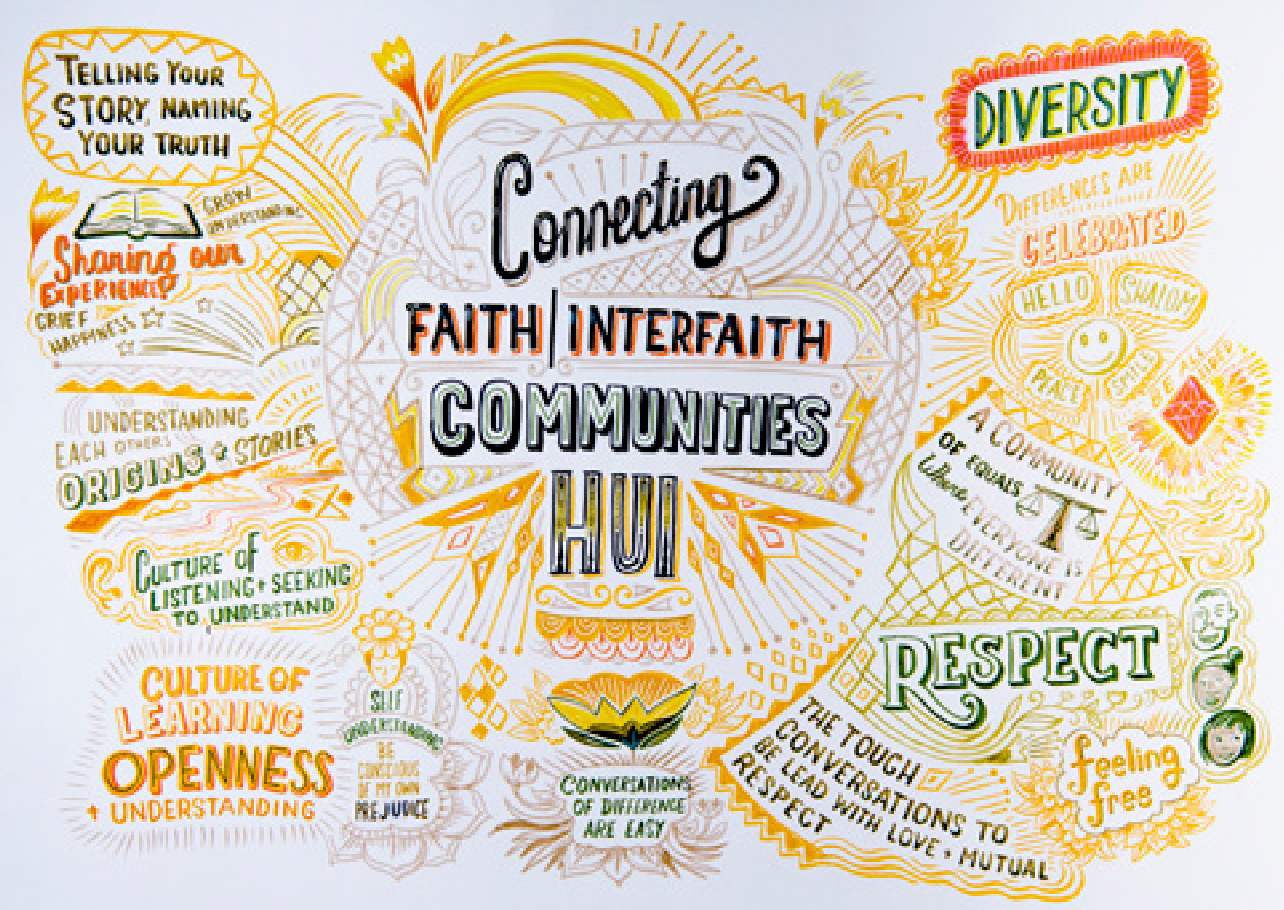 TELLING YOUR
STORY, NAMING
YOUR TRUTH
GROW
UNDERSTANDING
Sharing our
EXPERIENCE?
GRIEF
HAPPINESS
UNDERSTANDING
EACH OTHERS
ORIGINS + STORIES
CULTURE OF
LISTENING + SEEKING
TO UNDERSTAND
CULTURE OF
LEARNING
OPENNESS
+ UNDERSTANDING
SELF
UNDERSTANDING
BE
CONSCIOUS
OF MY OWN
PREJUDICE
Connecting
FAITH/INTERFAITH
COMMUNITIES
HUI
CONVERSATIONS
OF DIFFERENCE
ARE EASY
DIVERSITY
DIFFERENCES ARE
CELEBRATED
HELLO
SHALOM
PEACE
A COMMUNITY
OF EQUALS
Where EVERYONE IS
DIFFERENT
RESPECT
THE TOUGH
CONVERSATIONS TO
BE LEAD WITH LOVE + MUTUAL
RESPECT
feeling
free